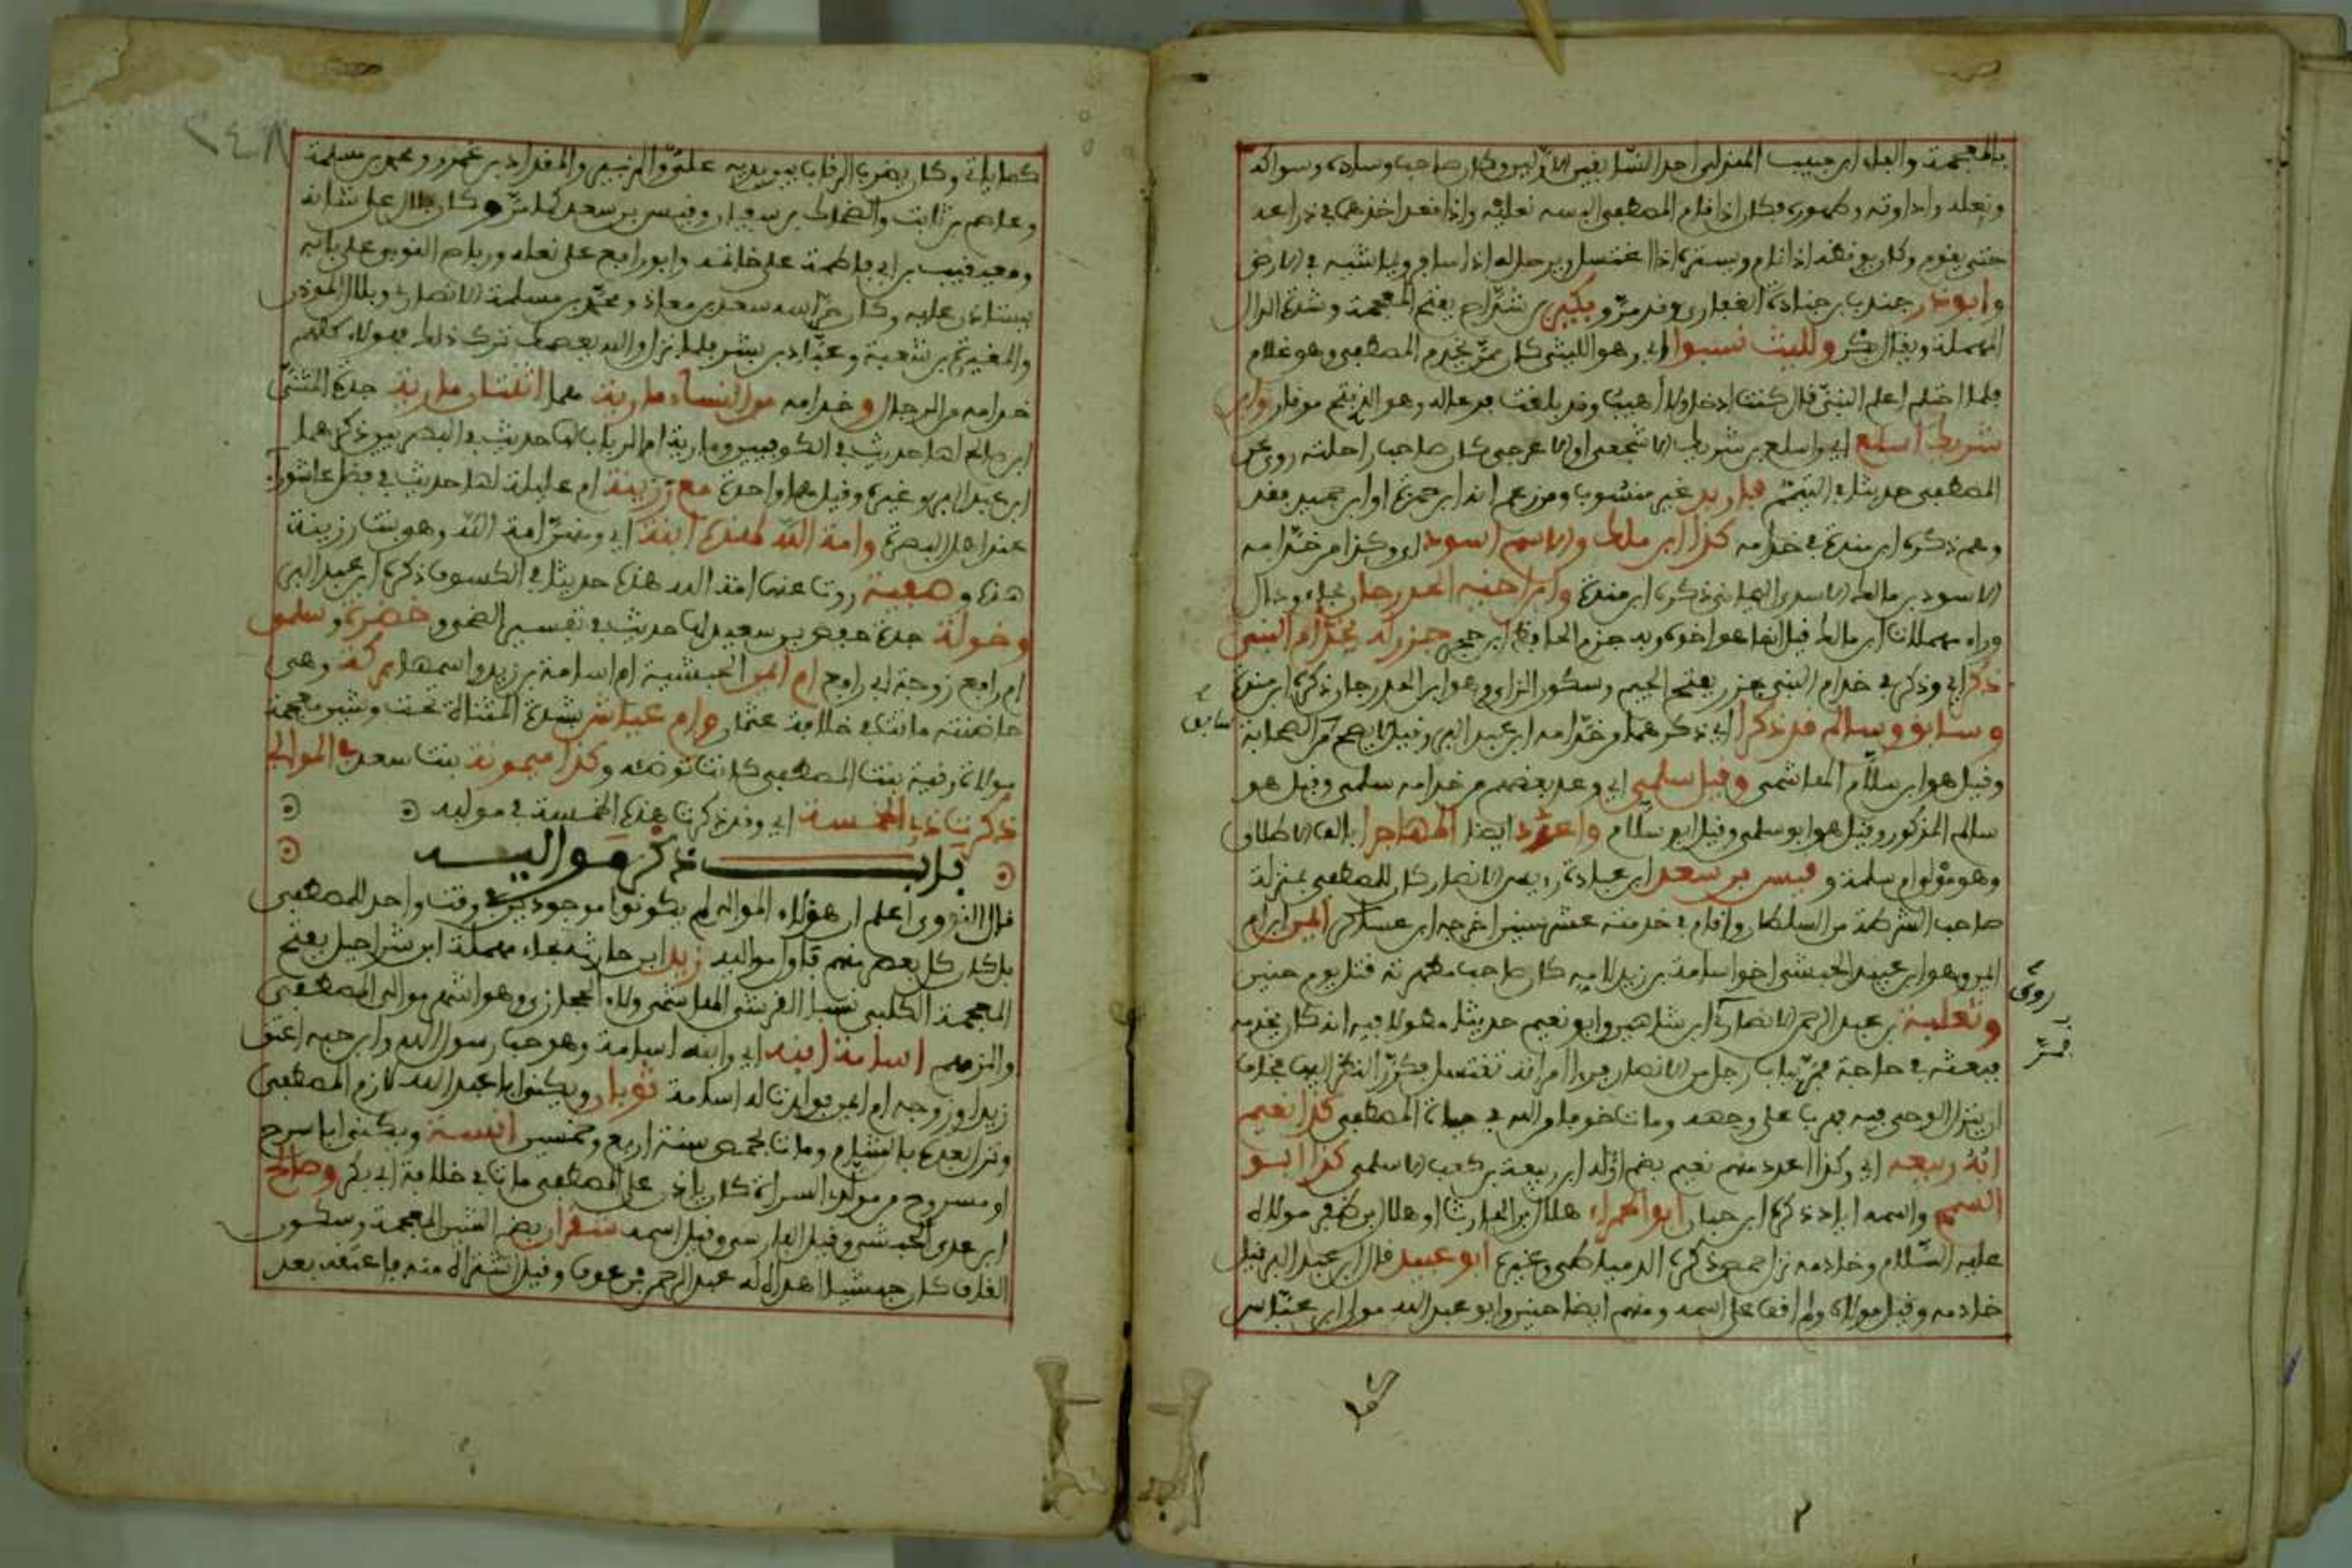 بالمعجمة والفاء ابن حبيب الهذلي احد السابقين الاولين وكان صاحب وساده وسواكه
ونعله واداوته وطهوره فكان اذا قام المصطفى البسه نعليه واذا قعد اخذهما في ذراعه
حتى يقوم وكان يوقظه اذا نام ويستره اذا اغتسل ويرحل له اذا سافر ويماشيه في الارض
وابو ذر جندب بن جنادة الغفاري وقد مرّ وبكير بن شدّاخ بفتح المعجمة وشدة الدال
المهملة ويقال بكر ولليث نسبوا اي وهو الليثي كان ممّن يخدم المصطفى وهو غلام
فلما احتلم اعلم النبيّ قال كنت ادخل ولا اهيب وقد بلغت فدعا له وهو الذي وابن
شريك اسلع اي واسلع بن شريك الاشجعي او الاعرجي كان صاحب راحلته روى عن
المصطفى حديثا في التيمم غير منسوب ومن زعم انه ابن حمزة او ابن حمير فقد
وهم ذكره ابن مندة في خدامه كذا ابن مالك والاسم اسود اي وكذا من خدّامه
الاسود بن مالك الاسدي اليماني ذكره ابن مندة وابن اخيه الحدرجان بحاء ودال
وراء مهملات ابن مالك قيل انهما هو اخوه وبه جزم الحافظ ابن حجر جزء له بخدّام النبي
ذكر اي وذكر في خدام النبي جزء بفتح الجيم وسكون الزاي وهو ابن الحدرجان ذكره ابن مندة
وسابق وسالم قد ذكرا اي ذكرهما من خدّامه ابن عبد البر وقيل لا يصح في الصحابة
سابق
وقيل هو ابن سلّام الهاشمي وقيل سلمى اي وعد بعضهم من خدامه سلمى وقيل هو
سالم المذكور وقيل هو ابو سلمى وقيل ابو سلّام واعدد ايضا المهاجرا بالف الاطلاق
وهو مولى ام سلمة وقيس بن سعد ابن عبادة رئيس الانصار كان للمصطفى بمنزلة
صاحب الشرطة من السلطان واقام في خدمته عشر سنين اخرجه ابن عساكر ايمن ابن ام
ايمن وهو ابن عبيد الحبشي اخو اسامة بن زيد لامه كان صاحب مطهرته قتل يوم حنين
وثعلبة بن عبد الرحمن الانصاري ابن شاهين وابو نعيم حديثا مطولا فيه انه كان يخدمه
روى
فبعثه في حاجة فمرّ بباب رجل من الانصار فرأى امراته تغتسل فكرّر النظر اليها فخاف
ان ينزل الوحي فيه فهرب على وجهه ومات خوفا من الله في حياة المصطفى كذا نعيم
ابه ربيعه اي وكذا اعدد منهم نعيم بضم اوّله ابن ربيعة بن كعب الاسلمي كذا ابو
السمح واسمه اياد ذكره ابن حبان ابو الحمراء هلال بن الحارث او هلال بن ظفر مولاه
عليه السّلام وخادمه نزل حمص ذكره الدمياطي وغيره ابو عبيد قال ابن عبد البر قيل
خادمه وقيل مولاه ولم اقف على اسمه ومنهم ايضا حنين وابو عبد الله مولى ابن عبّاس
٢٤٨
وكان يضرب الرقاب بين يديه علي والزبير والمقداد بن عمرو ومحمد بن مسلمة
وعاصم بن ثابت والضحاك بن سفيان وقيس بن سعد كما مرّ وكان بلال على
ومعيقيب بن ابي فاطمة على خاتمه وابو رافع على نعله ورباح النوبي على بابه
يستاذن عليه وكان حرّاسه سعد بن معاذ ومحمد بن مسلمة الانصاري وبلال المؤذن
والمغيرة بن شعبة وعبّاد بن بشر فلما نزل والله يعصمك ترك ذلك فهؤلاء كلهم
خدامه من الرجال وخدامه من النساء مارية هما اثنتان مارية جدة المثنّى
ابن صالح لها حديث في الكوفيين ومارية ام الرباب لها حديث في البصريين ذكرهما
ابن عبد البر وغيره وقيل هما واحدة مع رزينة ام عليلة لها حديث في فضل عاشورا
عند اهل البصرة وامة الله لهذه ابنة اي ومنهنّ امة الله وهو بنت رزينة
هذه وصفية روت عنها امة الله هذه حديثا في الكسوف ذكره ابن عبد البر
وخولة جدة حفص بن سعيد لها حديث في تفسير الضحى وخضرة وسلمى
ام رافع زوجة ابي رافع ام ايمن الحبشية ام اسامة بن زيد واسمها بركة وهي
حاضنته ماتت في خلافة عثمان وام عياش بشدة المثناة تحت وشين معجمة
مولاة رقية بنت المصطفى كانت توضئه وكذا ميمونة بنت سعد في الموالي
ذكرت ذي الخمسة اي وقد ذكرت هذه الخمسة في مواليه
باب ذكر مواليـــه
قال النووي اعلم ان هؤلاء الموالي لم يكونوا موجودين في وقت واحد للمصطفى
بل كان كل بعض منهم في وقت مواليه زيد ابن حارثة بحاء مهملة ابن شراحيل بفتح
المعجمة الكلبي نسبا القرشي الهاشمي ولاء الحجازي وهو اشهر موالي المصطفى
والزمهم اسامة ابنه اي وابنه اسامة وهو حب رسول الله وابن حبه اعتق
زيدا وزوجه ام ايمن فولدت له اسامة ثوبان ويكنى ابا عبد الله لازم المصطفى
ونزل بعده بالشام ومات بحمص سنة اربع وخمسين انسة ويكنى ابا مسرح
او مسروح من مولدي السراة كان ياذن على المصطفى مات في خلافة ابي بكر وصالح
ابن عدي الحبشي وقيل الفارسي وقيل اسمه شقران بضم الشين المعجمة وسكون
القاف كان حبشيا اهداه له عبد الرحمن بن عوف وقيل اشتراه منه فاعتقه بعد